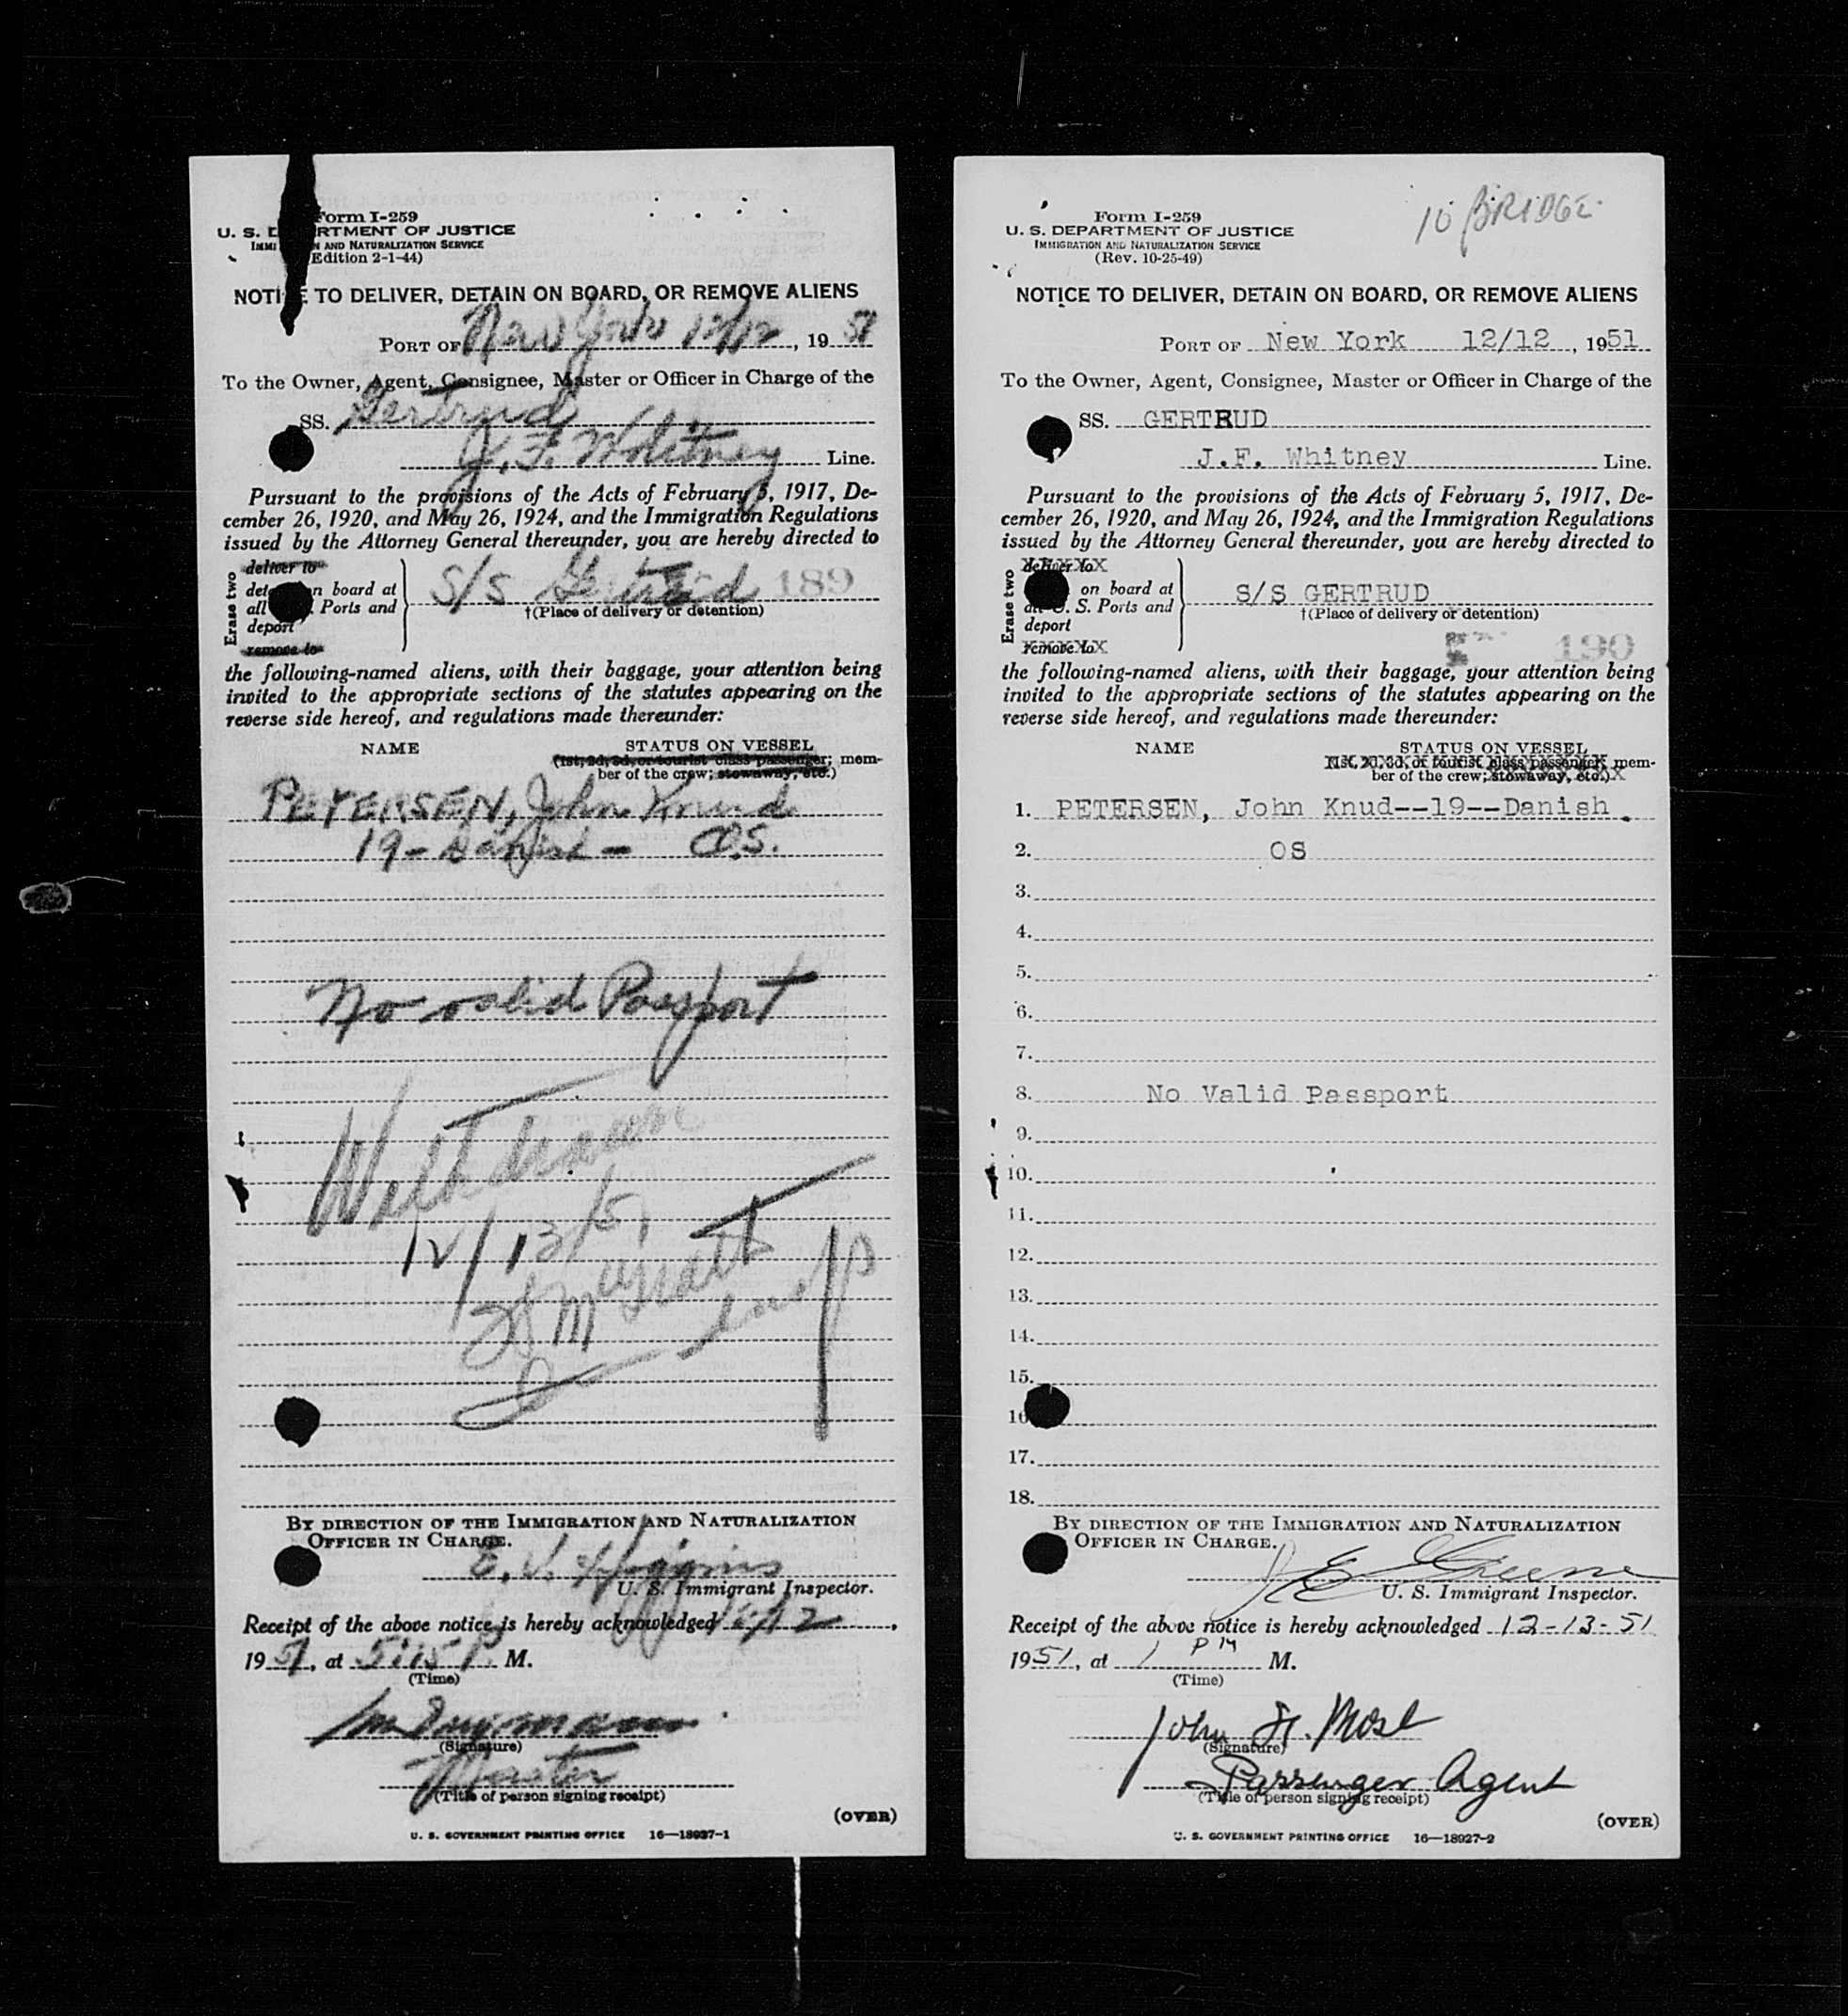 Form I-259
U. S. DEPARTMENT OF JUSTICE
IMMIGRATION AND NATURALIZATION SERVICE
(Edition 2-1-44)
NOTICE TO DELIVER, DETAIN ON BOARD, OR REMOVE ALIENS
PORT OF New York 12/12, 19 51
To the Owner, Agent, Consignee, Master or Officer in Charge of the
SS. Gertrud
J. F. Whitney Line.
Pursuant to the provisions of the Acts of February 5, 1917, De-
cember 26, 1920, and May 26, 1924, and the Immigration Regulations
issued by the Attorney General thereunder, you are hereby directed to
Erase two
deliver to
detain on board at
all U. S. Ports and
deport
remove to
S/S Gertrud 189
†(Place of delivery or detention)
the following-named aliens, with their baggage, your attention being
invited to the appropriate sections of the statutes appearing on the
reverse side hereof, and regulations made thereunder:
NAME STATUS ON VESSEL
(1st, 2d, 3d, or tourist class passenger; mem-
ber of the crew; stowaway, etc.)
PETERSEN, John Knud
19 - Danish - O.S.
No valid Passport
Withdrawn
12/13/51
BY DIRECTION OF THE IMMIGRATION AND NATURALIZATION
OFFICER IN CHARGE.
E. J. Higgins
U. S. Immigrant Inspector.
Receipt of the above notice is hereby acknowledged 12/12,
19 51, at 5:15 P. M.
(Time)
(Signature)
Master
(Title of person signing receipt)
(OVER)
U. S. GOVERNMENT PRINTING OFFICE 16—18927-1
10 BRIDGE
Form I-259
U. S. DEPARTMENT OF JUSTICE
IMMIGRATION AND NATURALIZATION SERVICE
(Rev. 10-25-49)
NOTICE TO DELIVER, DETAIN ON BOARD, OR REMOVE ALIENS
PORT OF New York 12/12, 1951
To the Owner, Agent, Consignee, Master or Officer in Charge of the
SS. GERTRUD
J.F. Whitney Line.
Pursuant to the provisions of the Acts of February 5, 1917, De-
cember 26, 1920, and May 26, 1924, and the Immigration Regulations
issued by the Attorney General thereunder, you are hereby directed to
Erase two
deliver to
on board at
all U. S. Ports and
deport
remove to
S/S GERTRUD
†(Place of delivery or detention)
190
the following-named aliens, with their baggage, your attention being
invited to the appropriate sections of the statutes appearing on the
reverse side hereof, and regulations made thereunder:
NAME STATUS ON VESSEL
(1st, 2d, 3d, or tourist class passenger; mem-
ber of the crew; stowaway, etc.)
1. PETERSEN, John Knud--19--Danish.
2. OS
3.
4.
5.
6.
7.
8. No Valid Passport
9.
10.
11.
12.
13.
14.
15.
16
17.
18.
BY DIRECTION OF THE IMMIGRATION AND NATURALIZATION
OFFICER IN CHARGE.
Greene
U. S. Immigrant Inspector.
Receipt of the above notice is hereby acknowledged 12-13-51
1951, at 1 PM M.
(Time)
John
(Signature)
Passenger Agent
(Title of person signing receipt)
(OVER)
U. S. GOVERNMENT PRINTING OFFICE 16—18927-2